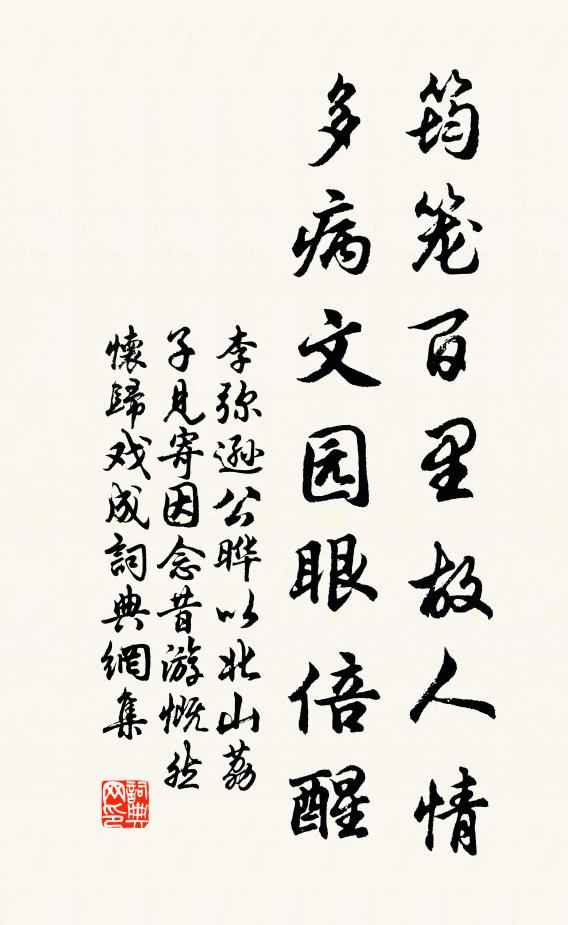 筠笼百里故人情
多病文园眼倍醒
李弥逊公晔以北山荔
子见寄因念昔游慨然
懷歸戏成詞典網集
詞典
网印